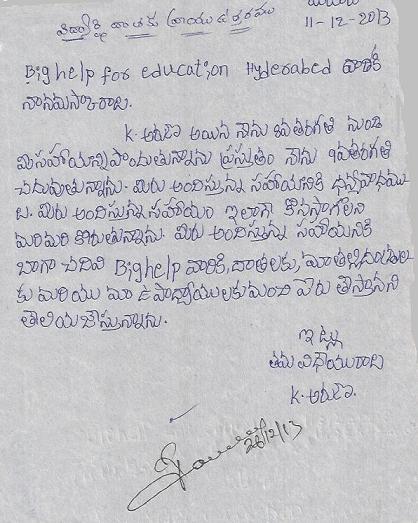 విద్యార్థి దాతకు వ్రాయు పత్తరము
11-12-2013
Big help for education Hyderabed వారికి
నానమసాకారాలు.
K. అరుణ అయిన నేను 8వతరగతి నుండి
మీసహాయాన్ని పొందుతున్నాను ప్రస్తుతం నేను 9వతరగతి
చదువుతున్నాను. మీరు అందిస్తున్న సహాయానికి ధన్యవాదము
లు. మీరు అందిస్తున్న సహాయం ఇలాగే కొనసాగాలని
మరిమరి కోరుతున్నాను. మీరు అందిస్తున్న సహాయానికి
బాగా చదివి Bighelp వారికి, దాతలకు, మా తల్లిదండ్రుల
కు మరియు మా ఉపాధ్యాయులకు మంచి పేరు తెస్తానని
తెలియజేస్తున్నాను.
ఇట్లు
తమ విధేయురాలు
K. అరుణ.
26/12/13